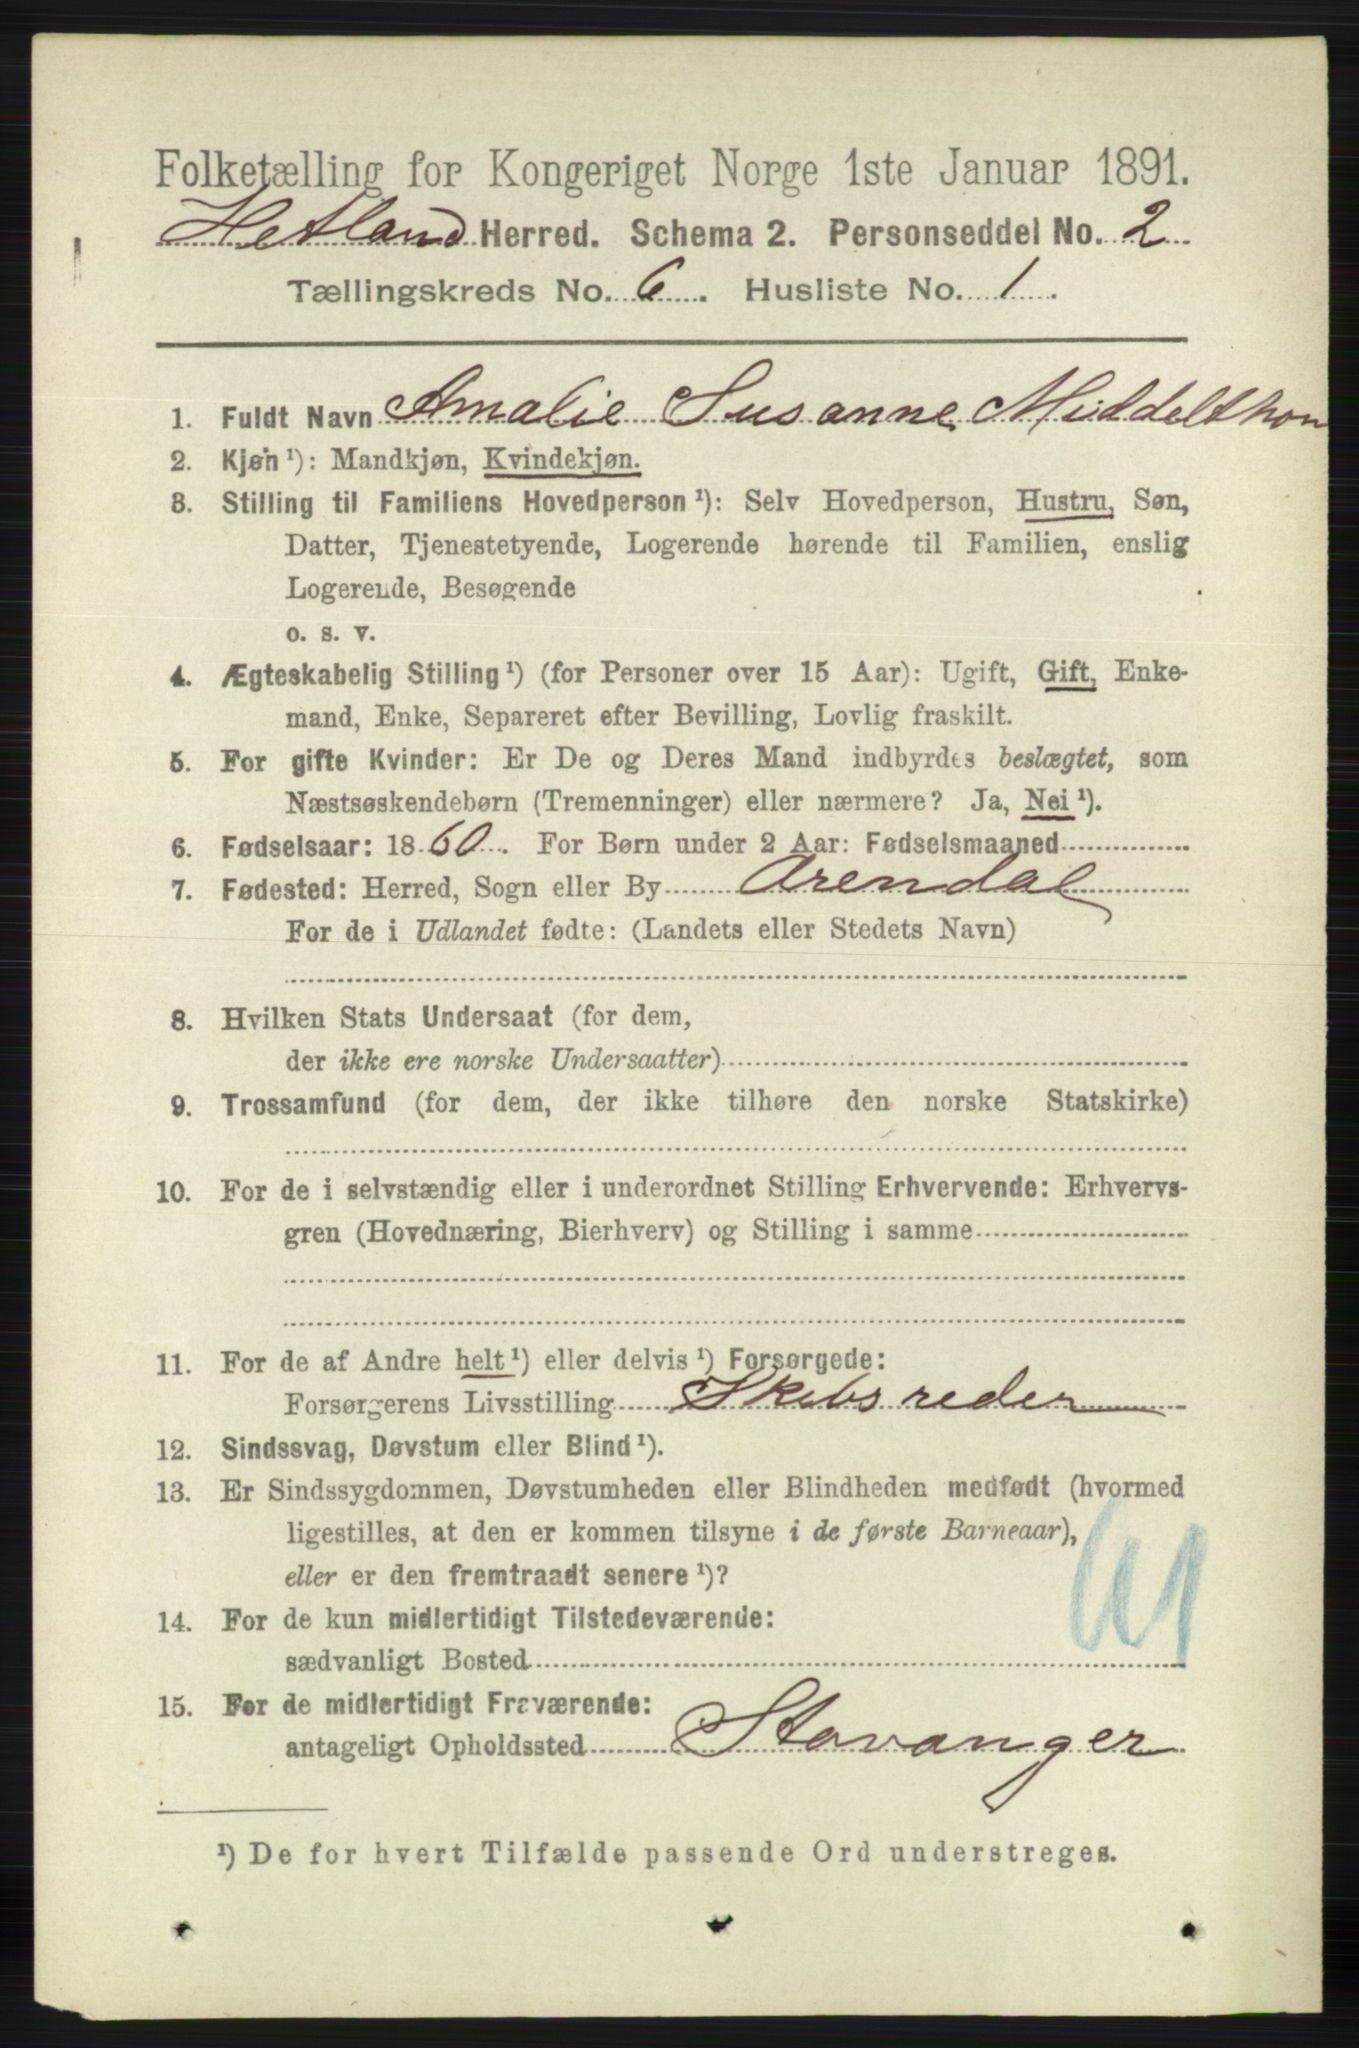 Folketælling for Kongeriget Norge 1ste Januar 1891.
Hetland Herred. Schema 2. Personseddel No. 2
Tællingskreds No. 6. Husliste No. 1.
1. Fuldt Navn Amalie Susanne Middelthon
2. Kjøn ¹): Mandkjøn, Kvindekjøn.
3. Stilling til Familiens Hovedperson ¹): Selv Hovedperson, Hustru, Søn,
Datter, Tjenestetyende, Logerende hørende til Familien, enslig
Logerende, Besøgende
o. s. v.
4. Ægteskabelig Stilling ¹) (for Personer over 15 Aar): Ugift, Gift, Enke-
mand, Enke, Separeret efter Bevilling, Lovlig fraskilt.
5. For gifte Kvinder: Er De og Deres Mand indbyrdes beslægtet, som
Næstsøskendebørn (Tremenninger) eller nærmere? Ja, Nei ¹).
6. Fødselsaar: 1860. For Børn under 2 Aar: Fødselsmaaned
7. Fødested: Herred, Sogn eller By Arendal
For de i Udlandet fødte: (Landets eller Stedets Navn)
8. Hvilken Stats Undersaat (for dem,
der ikke ere norske Undersaatter)
9. Trossamfund (for dem, der ikke tilhøre den norske Statskirke)
10. For de i selvstændig eller i underordnet Stilling Erhvervende: Erhvervs-
gren (Hovednæring, Bierhverv) og Stilling i samme
11. For de af Andre helt ¹) eller delvis ¹) Forsørgede:
Forsørgerens Livsstilling Skibsreder
12. Sindssvag, Døvstum eller Blind ¹).
13. Er Sindssygdommen, Døvstumheden eller Blindheden medfødt (hvormed
ligestilles, at den er kommen tilsyne i de første Barneaar),
eller er den fremtraadt senere ¹)?
14. For de kun midlertidigt Tilstedeværende:
sædvanligt Bosted
15. For de midlertidigt Fraværende:
antageligt Opholdssted Stavanger
¹) De for hvert Tilfælde passende Ord understreges.